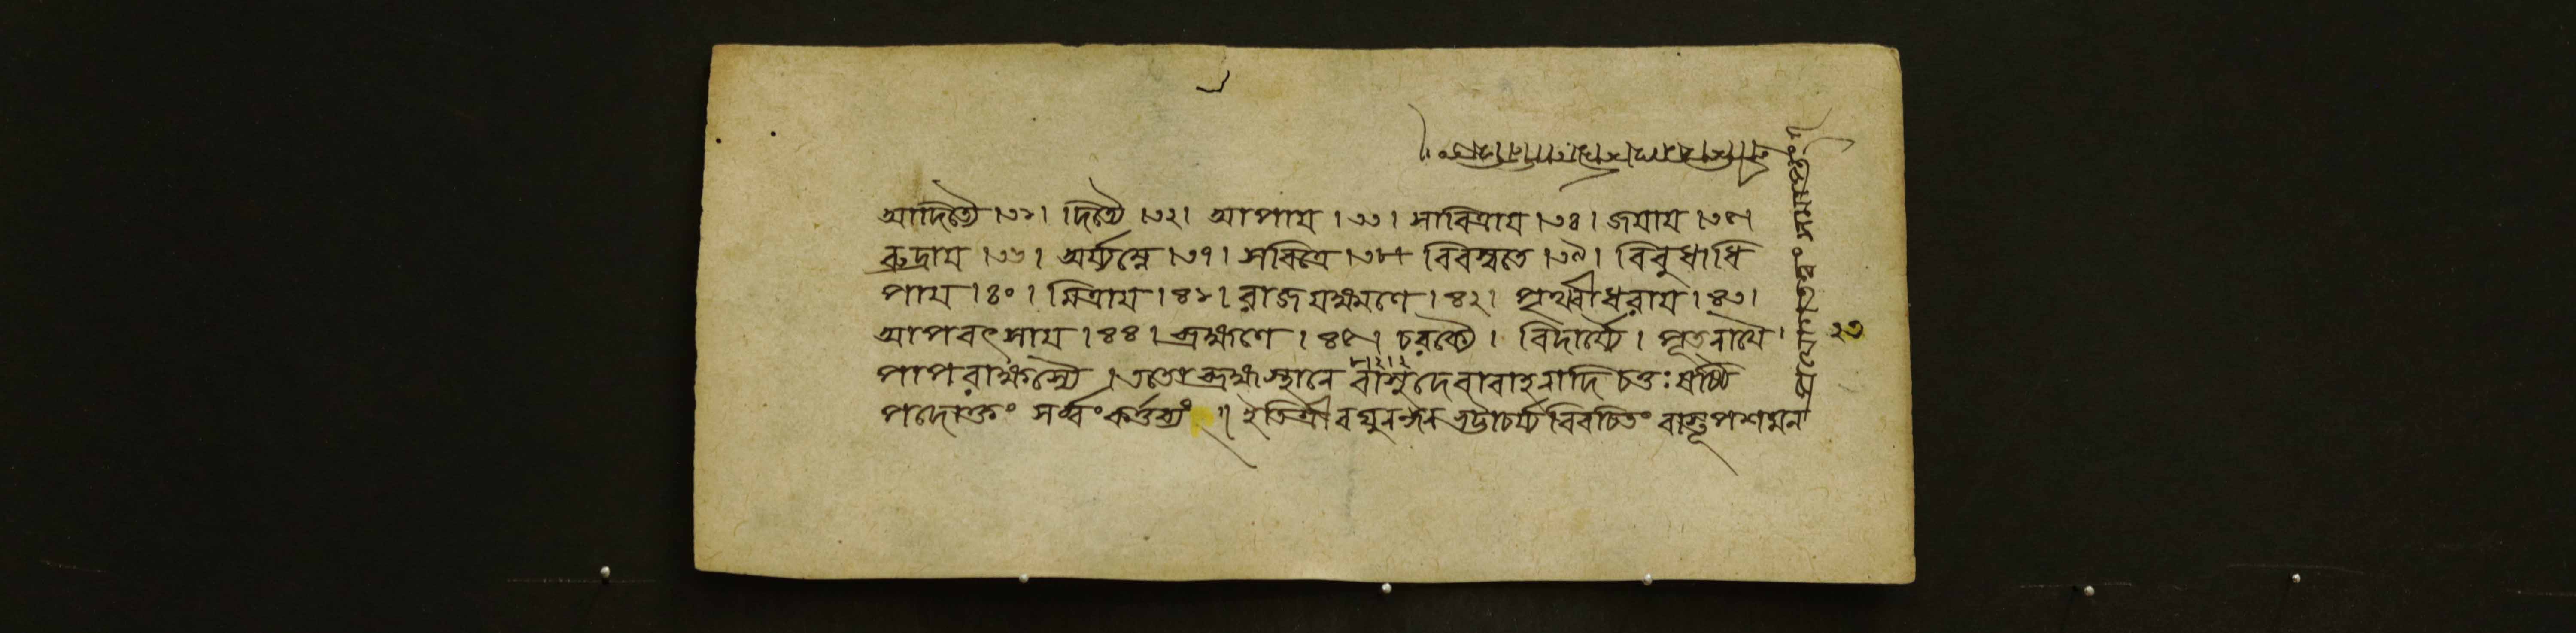 আদিত্যৈ ।৩১। দিত্যৈ ।৩২। আপায় ।৩৩। সাবিত্রায় ।৩৪। জয়ায় ।৩৫।
রুদ্রায় ।৩৬। অর্য্যম্নে ।৩৭। সবিত্রে ।৩৮। বিবস্বতে ।৩৯। বিবুধাধি
পায় ।৪০। মিত্রায় ।৪১। রাজযক্ষ্মণে ।৪২। পৃথ্বীধরায় ।৪৩।
আপবৎসায় ।৪৪। ব্রহ্মণে ।৪৫। চরক্যৈ । বিদার্য্যৈ । পূতনায়ৈ ।
পাপরাক্ষস্যৈ । ততো ব্রহ্মস্থানে বাসুদেবাবাহনাদি চতুঃষষ্টি
পদোক্তং সর্ব্বং কর্ত্তব্যং ॥ ইতি শ্রীরঘুনন্দনভট্টাচার্য্যবিরচিতং বাস্তূপশমন
প্রয়োগতত্ত্বং সমাপ্তং
২৩